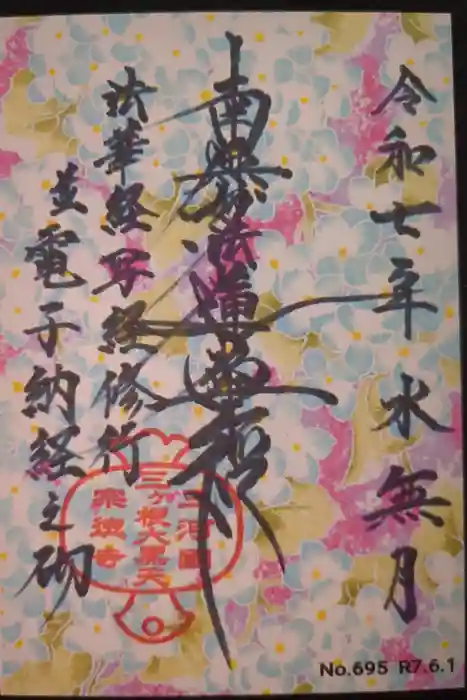 令和七年水無月
南無妙法蓮華経
法華経写経修行
並電子納経之砌
三河國
三ヶ根大黒天
No.695 R7.6.1